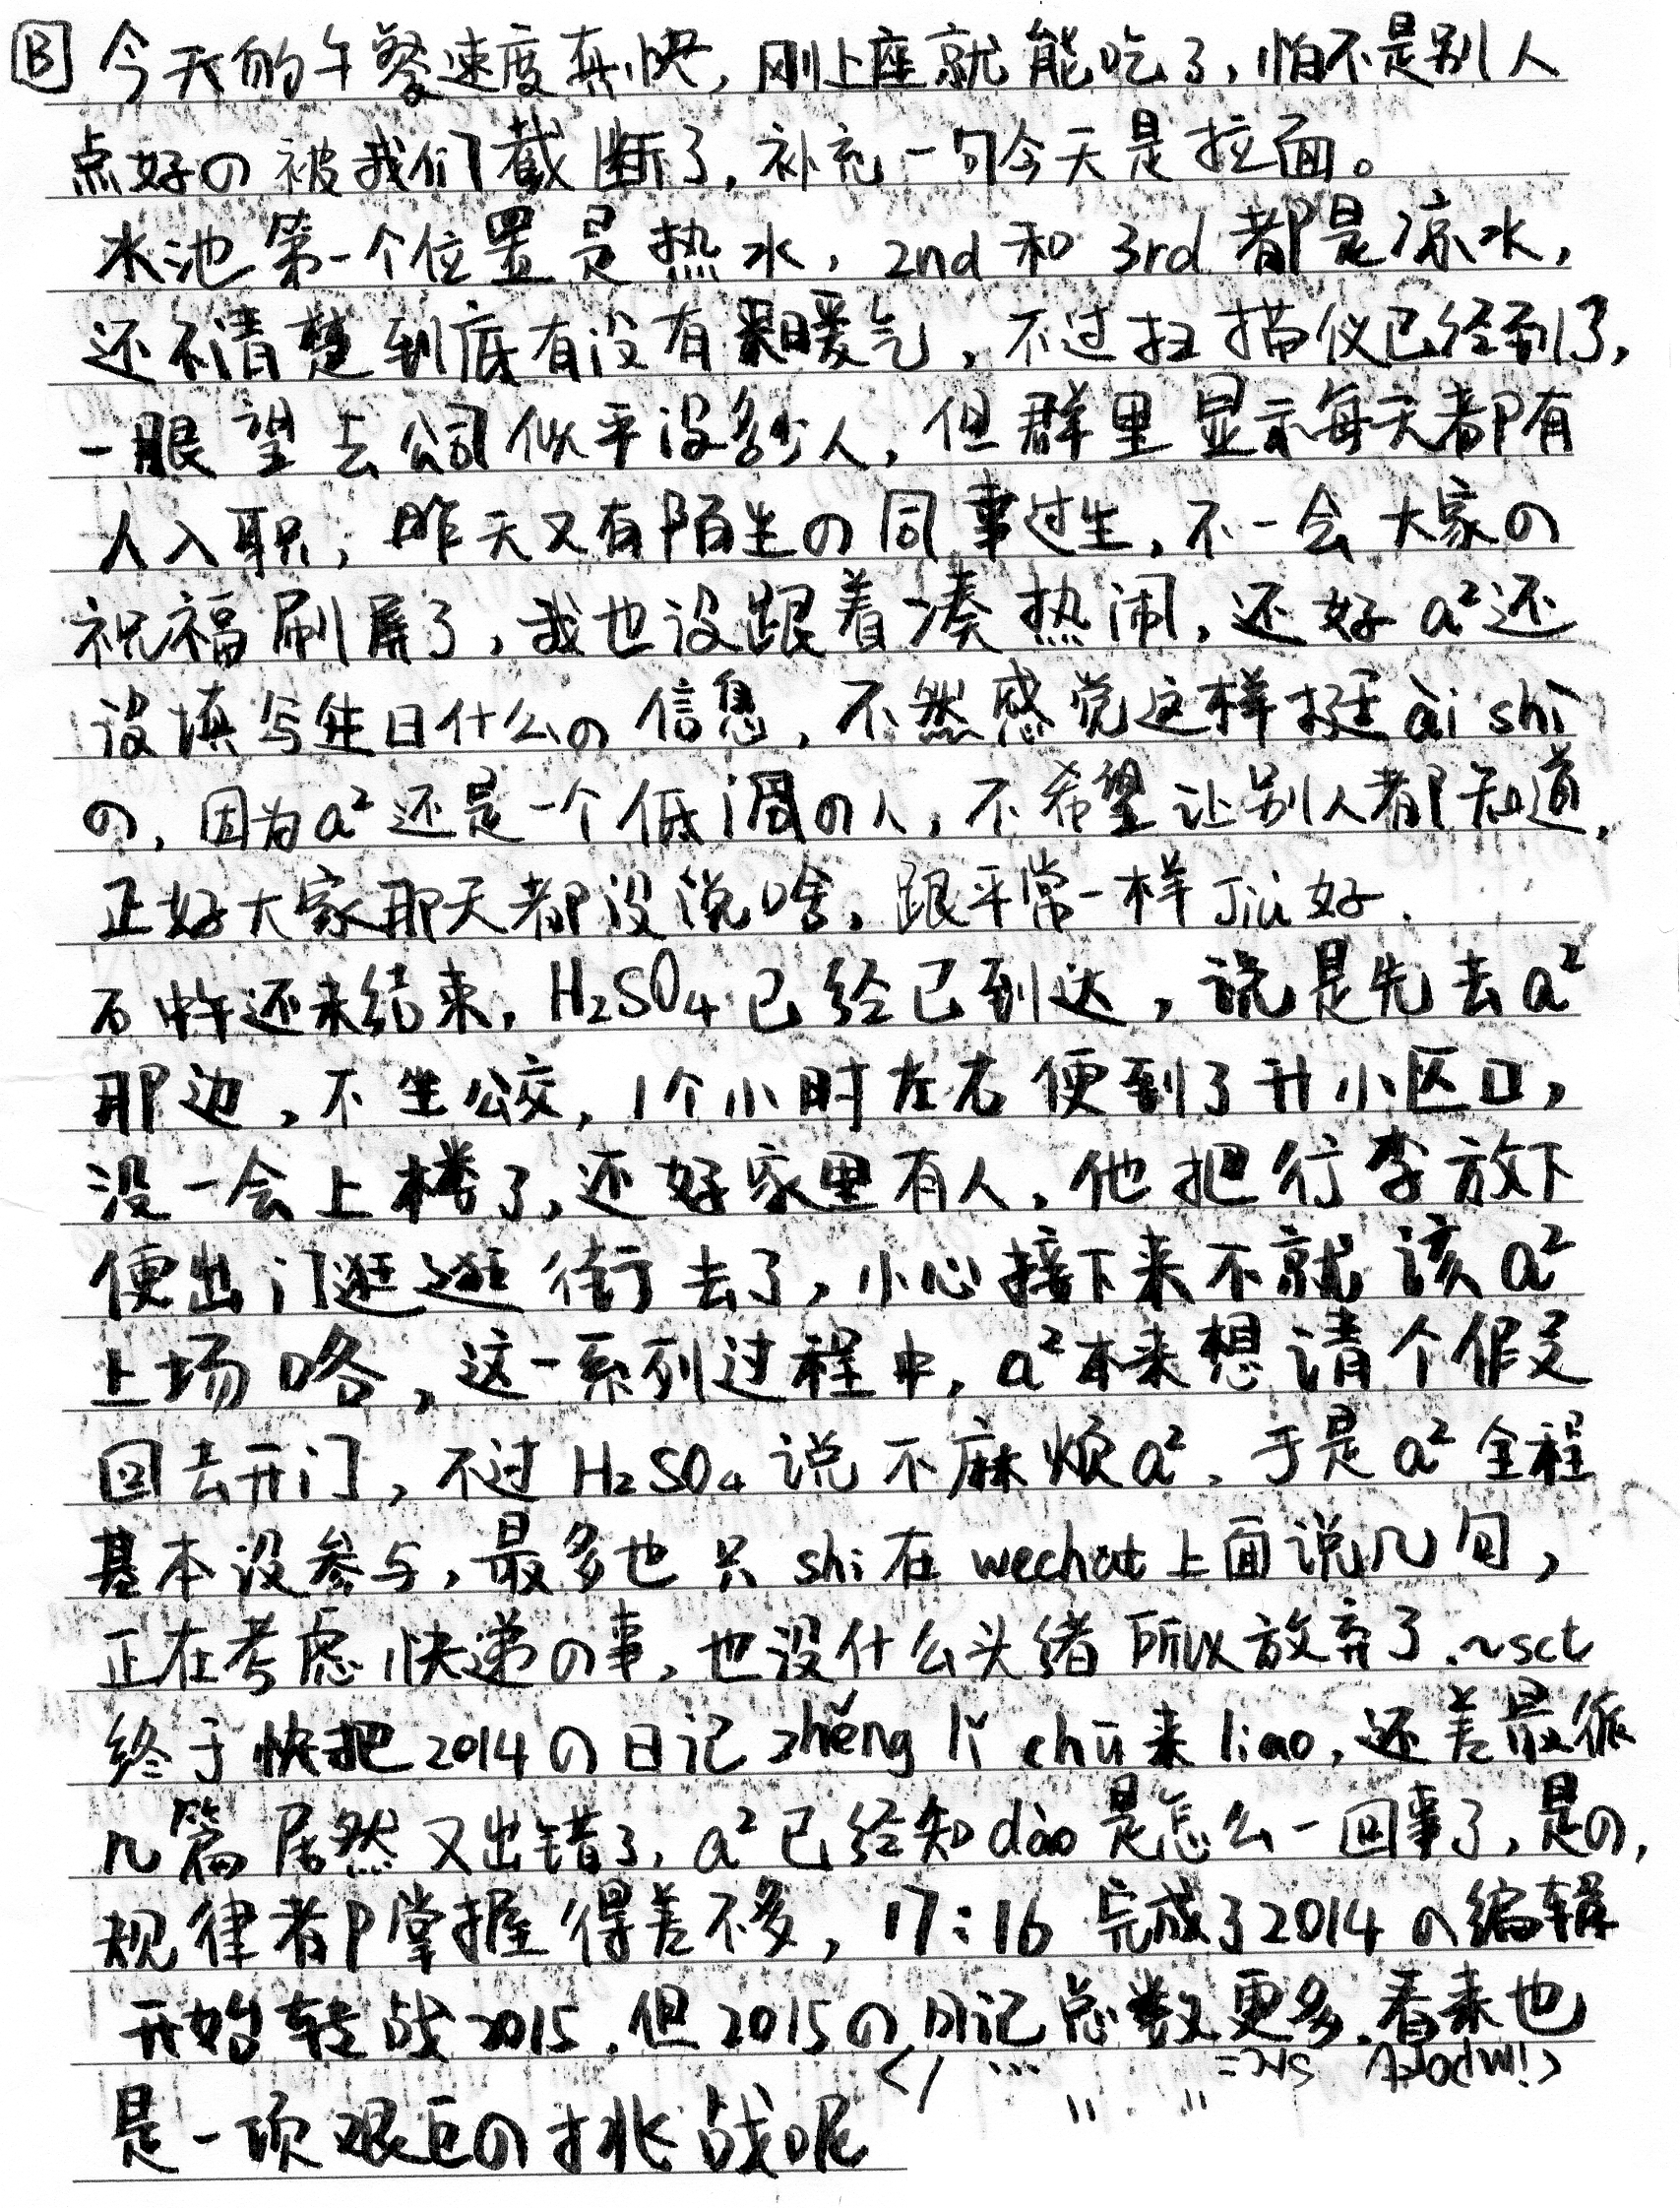 B 今天的午餐速度真快，刚上座就能吃了，怕不是别人
点好の被我们截断了，补充一句今天是拉面。
水池第一个位置是热水，2nd和3rd都是凉水，
还不清楚到底有没有来暖气，不过扫描仪已经到了，
一眼望去公司似乎没多少人，但群里显示每天都有
人入职；昨天又有陌生の同事过生，不一会大家の
祝福刷屏了，我也没跟着凑热闹，还好a²还
没填写生日什么の信息，不然感觉这样挺ài shì
の，因为a²还是一个低调の人，不希望让别人都知道，
正好大家聊天都没说啥，跟平常一样Jiù好.
还未结束，H₂SO₄已经已到达，说是先去a²
那边，不坐公交，1个小时左右便到了升小区口，
没一会上楼了，还好家里有人，他把行李放下
便出门逛逛街去了，小心接下来不就该a²
上场咯，这一系列过程中，a²本来想请个假
回去开门，不过H₂SO₄说不麻烦a²，于是a²全程
基本没参与，最多也只shi在wechat上面说几句，
正在考虑快递の事，也没什么头绪所以放弃了.~sct
终于快把2014の日记zhěng lǐ chū来liao，还差最后
几篇居然又出错了，a²已经知dào是怎么一回事了，是の，
规律都掌握得差不多，17:16 完成了2014の编辑
开始转战2015，但2015の日记总数更多，看来也
是一项艰巨の挑战呢